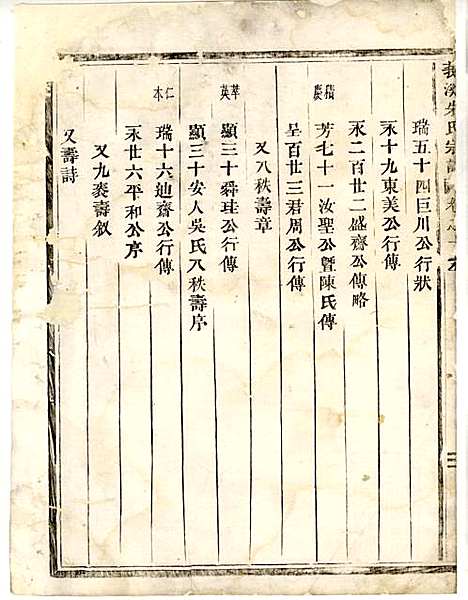 瑞五十四巨川公行狀
永十九東美公行傳
永二百廿二盛齋公傳略
積慶
芳七十一汝聖公暨陳氏傳
呈百廿三君周公行傳
又八秩壽章
萃英
顯三十舜珪公行傳
顯三十安人吳氏八秩壽序
仁本
瑞十六廸齋公行傳
永廿六平和公序
又九袠壽敘
又壽詩